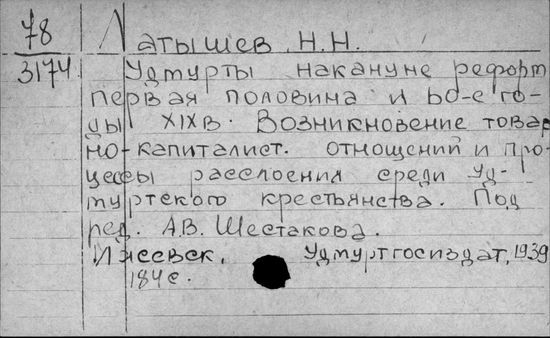 78
3174
Латышев, Н.Н.
Удмурты накануне реформ
первая половина и 60-е го-
ды XIXв. Возникновение товар
но-капиталист. отношений и про-
цессы расслоения среди уд-
муртского крестьянства. Под
ред. А.В. Шестакова.
Ижевск, Удмуртгосиздат, 1939
184с.